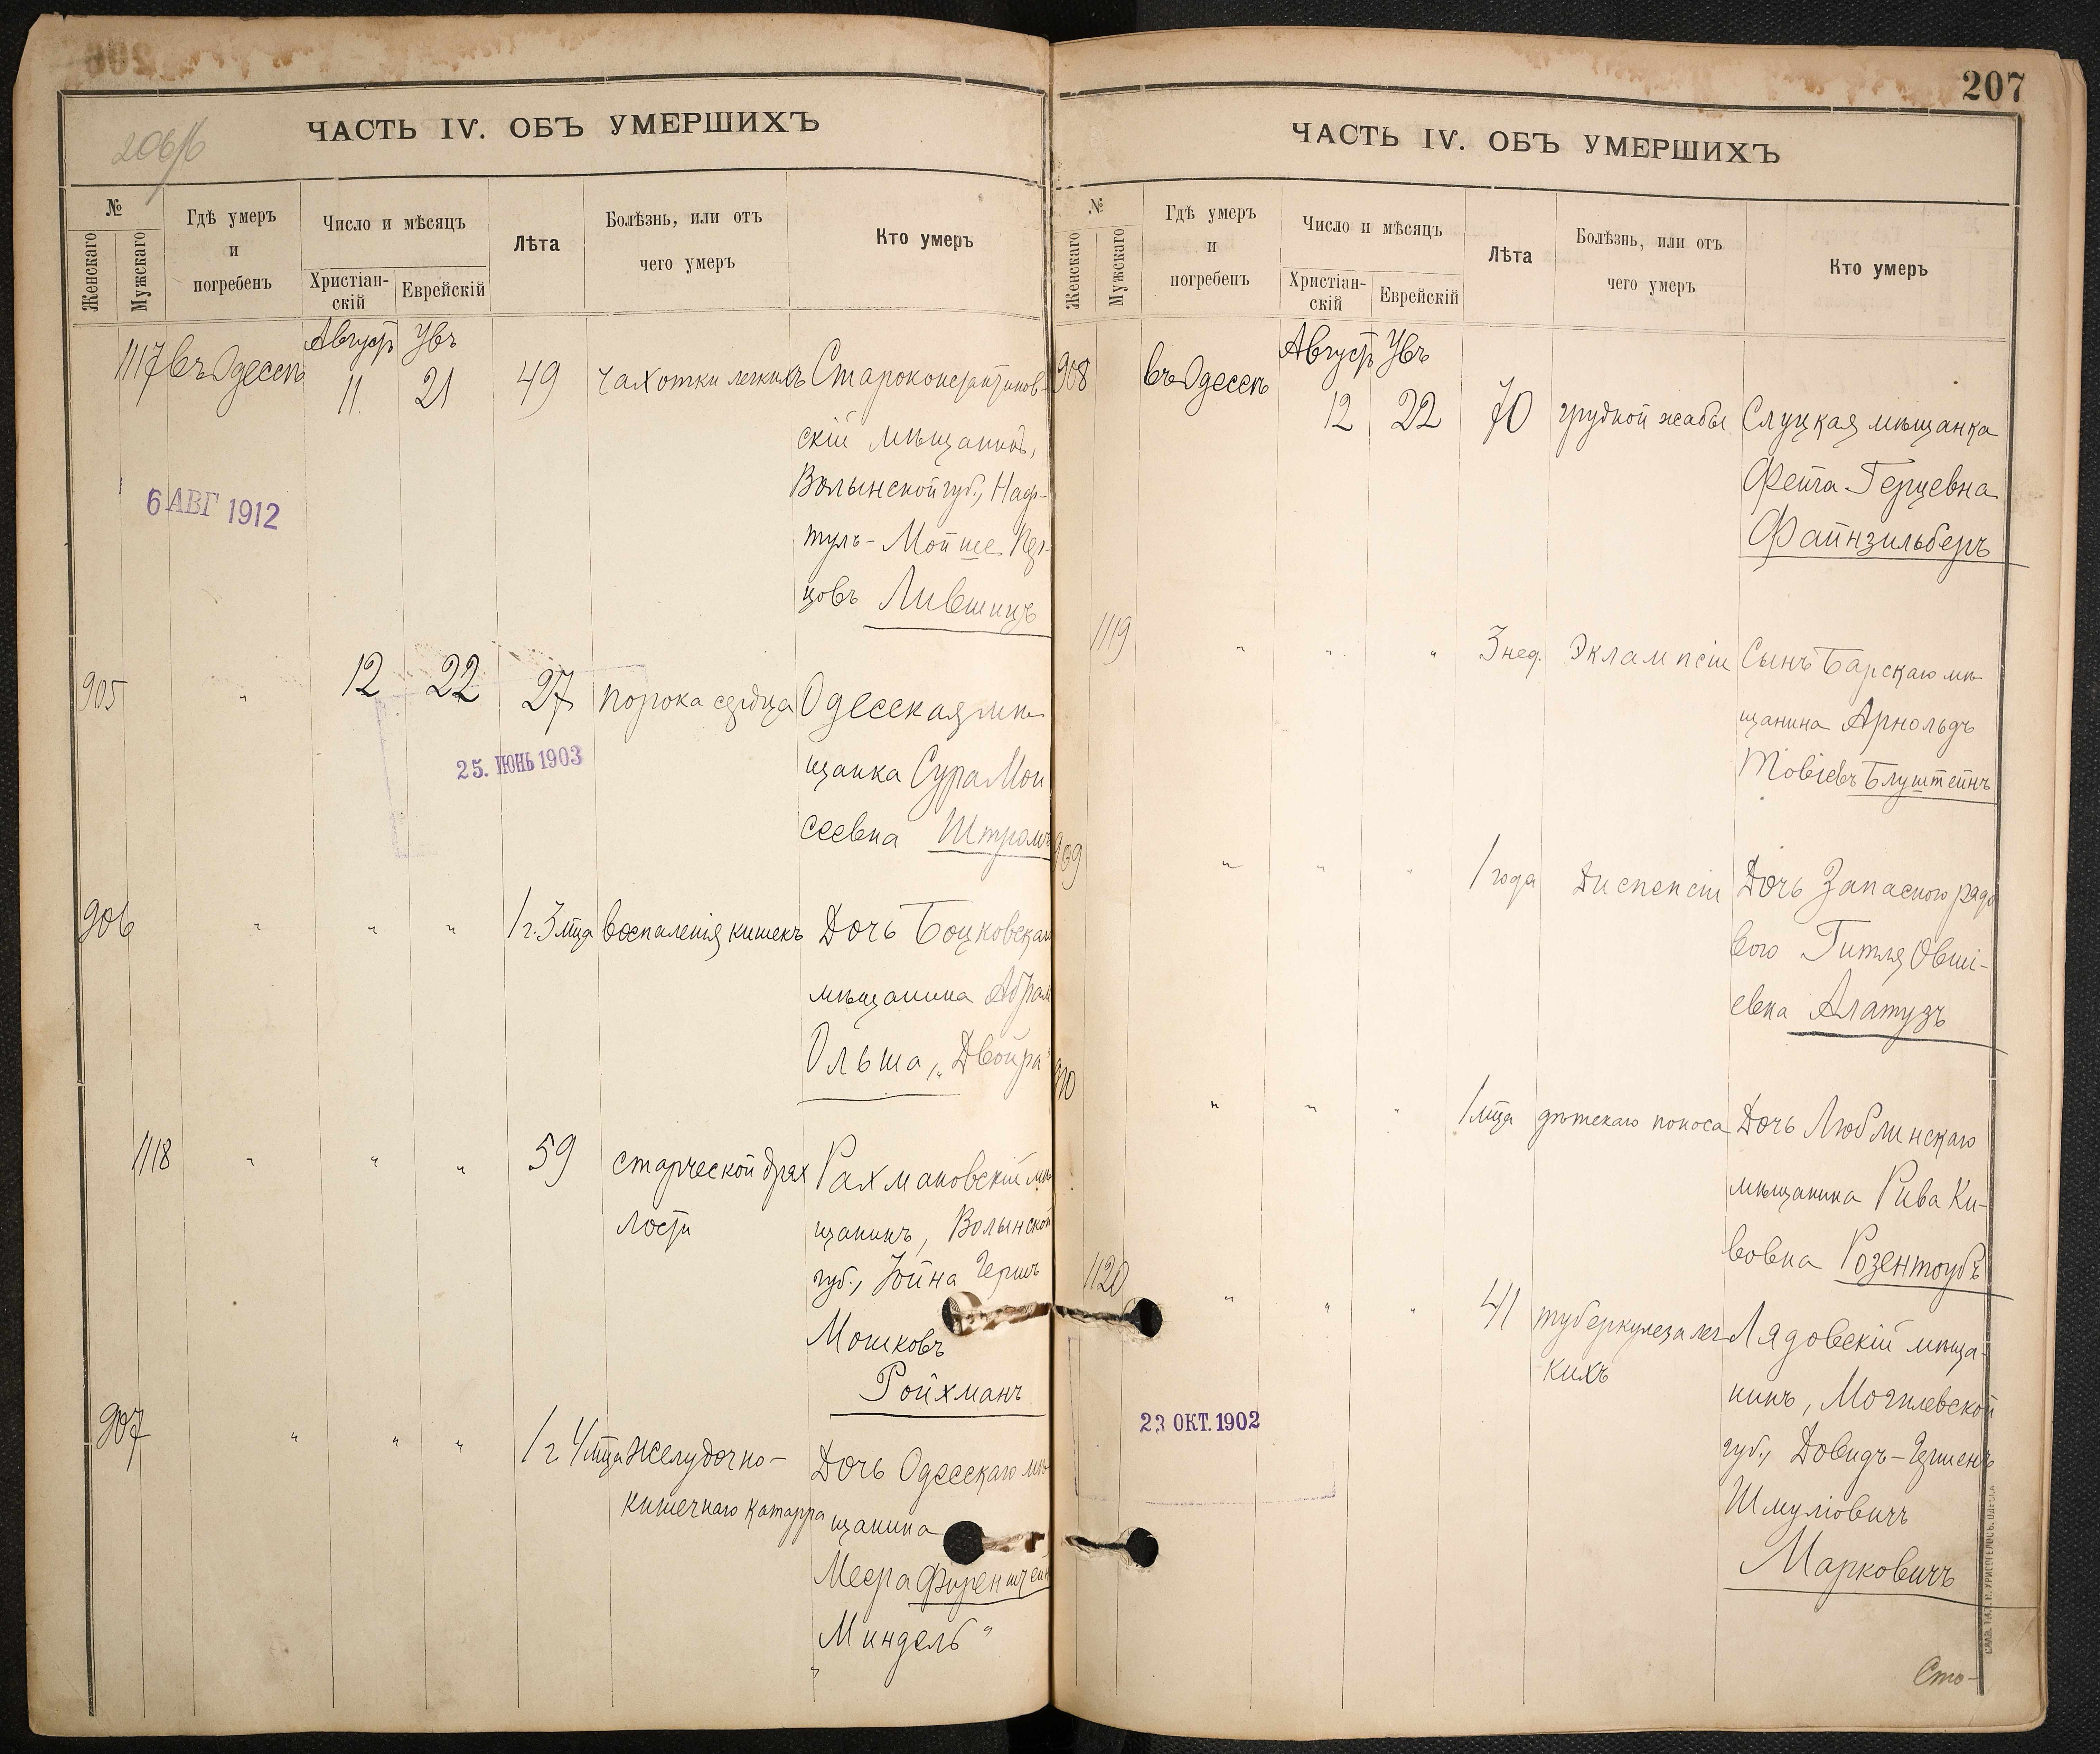 206/б
ЧАСТЬ IV. ОБЪ УМЕРШИХЪ
№
Женскаго
Мужскаго
Гдѣ умеръ
и
погребенъ
Число и мѣсяцъ
Христіан-
скій
Еврейскій
Лѣта
Болѣзнь, или отъ
чего умеръ
Кто умеръ
Августъ
1117 въ Одессѣ 11 21 49 чахотки легкихъ Староконстантинов-
скій мѣщанинъ,
Волынской губ., Наф-
туль-Мойше
цовъ Лившицъ
6 АВГ 1912
905 " 12 22 27 порока сердца Одесская мѣ-
щанка Сура Мои
сеевна Штромъ
25. ІЮНЬ 1903
906 " " " 1 г. 3 мца воспаленія кишекъ Дочь Боцковскаго
мѣщанина Абрам
Ольша, „Двойра"
1118 " " " 59 старческой дрях Рахмановскій мѣ
лости щанинъ, Волынской
губ., Іойна Гершъ
Мошковъ
Ройхманъ
907 " " " 1 г. 4 мца желудочно- Дочь Одесскаго мѣ-
кишечнаго катарра щанина
Меера
„Миндель"
207
ЧАСТЬ IV. ОБЪ УМЕРШИХЪ
№
Женскаго
Мужскаго
Гдѣ умеръ
и
погребенъ
Число и мѣсяцъ
Христіан-
скій
Еврейскій
Лѣта
Болѣзнь, или отъ
чего умеръ
Кто умеръ
Августъ
908 въ Одессѣ 12 22 70 грудной жабы Слуцкая мѣщанка
Фейга Герцевна
Файнзильберъ
1119 " " " 3 нед. Эклампсіи Сынъ Барскаго мѣ-
щанина Арнольдъ
Товіевъ Блуштейнъ
909 " " " 1 года Диспепсіи Дочь Запаснаго рядо
вого Гитля Овші-
евна Алатузъ
910 " " " 1 мца дѣтскаго поноса Дочь Люблинскаго
мѣщанина Рива Ки-
вовна Розентоубъ
1120 " " " 41 туберкулеза лег Лядовскій мѣща-
кихъ нинъ, Могилевской
губ., Довидъ-Гершенъ
Шмуліовичъ
Марковичъ
23 ОКТ. 1902
Сто-